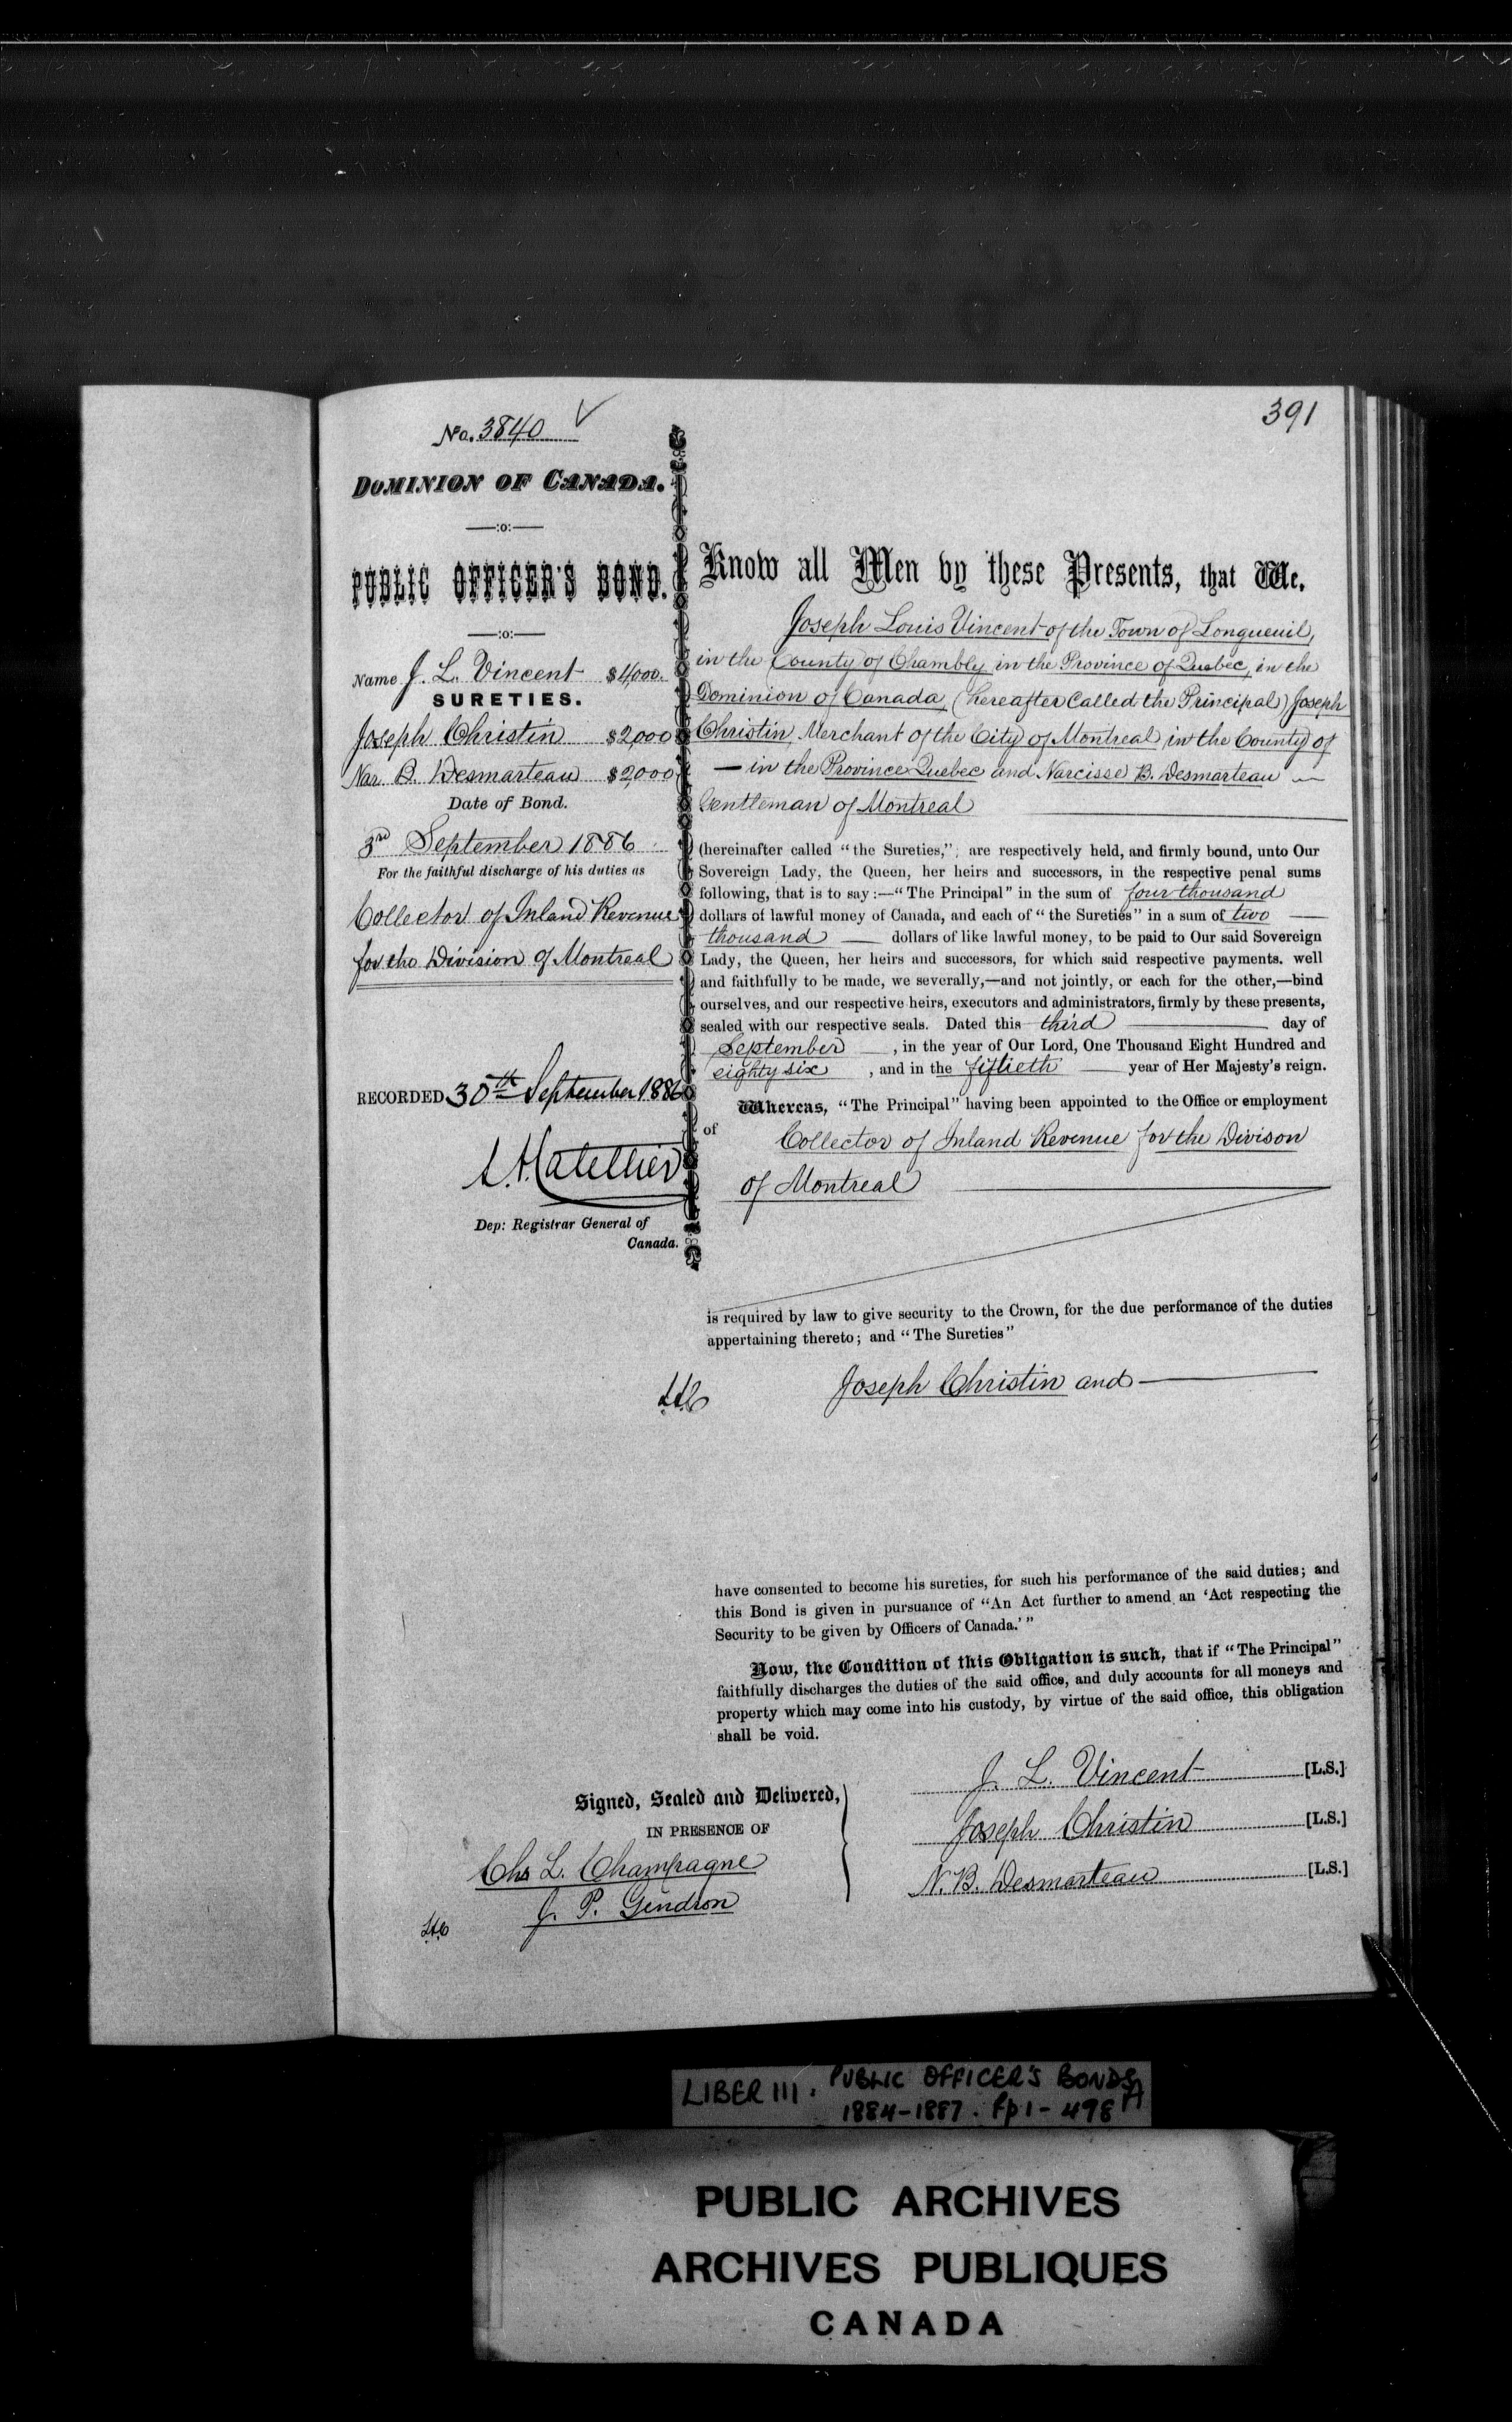 391
No. 3840
DOMINION OF CANADA.
—:o:—
PUBLIC OFFICER'S BOND.
—:o:—
Name J. L. Vincent $4,000.
SURETIES.
Joseph Christin $2,000
Nar. B. Desmarteau $2,000
Date of Bond.
3rd September 1886
For the faithful discharge of his duties as
Collector of Inland Revenue
for the Division of Montreal
RECORDED 30th September 1886
Dep: Registrar General of
Canada.
Know all Men by these Presents, that We.
Joseph Louis Vincent of the Town of Longueuil,
in the County of Chambly in the Province of Quebec, in the
Dominion of Canada, (hereafter Called the Principal) Joseph
Christin, Merchant of the City of Montreal in the County of
— in the Province Quebec and Narcisse B. Desmarteau —
Gentleman of Montreal
(hereinafter called "the Sureties," are respectively held, and firmly bound, unto Our
Sovereign Lady, the Queen, her heirs and successors, in the respective penal sums
following, that is to say:—"The Principal" in the sum of four thousand
dollars of lawful money of Canada, and each of "the Sureties" in a sum of two —
thousand — dollars of like lawful money, to be paid to Our said Sovereign
Lady, the Queen, her heirs and successors, for which said respective payments. well
and faithfully to be made, we severally,—and not jointly, or each for the other,—bind
ourselves, and our respective heirs, executors and administrators, firmly by these presents,
sealed with our respective seals. Dated this third — day of
September —, in the year of Our Lord, One Thousand Eight Hundred and
eighty six, and in the fiftieth — year of Her Majesty's reign.
Whereas, "The Principal" having been appointed to the Office or employment
of Collector of Inland Revenue for the Divison
of Montreal
is required by law to give security to the Crown, for the due performance of the duties
appertaining thereto; and "The Sureties"
Joseph Christin and —
have consented to become his sureties, for such his performance of the said duties; and
this Bond is given in pursuance of "An Act further to amend an 'Act respecting the
Security to be given by Officers of Canada.'"
Now, the Condition of this Obligation is such, that if "The Principal"
faithfully discharges the duties of the said office, and duly accounts for all moneys and
property which may come into his custody, by virtue of the said office, this obligation
shall be void.
J. L. Vincent [L.S.]
Joseph Christin [L.S.]
N. B. Desmarteau [L.S.]
Signed, Sealed and Delivered,
IN PRESENCE OF
Chs L. Champagne
J. P. Gendron
LIBER III. PUBLIC OFFICER'S BONDS
1884-1887. fp 1-498A
PUBLIC ARCHIVES
ARCHIVES PUBLIQUES
CANADA